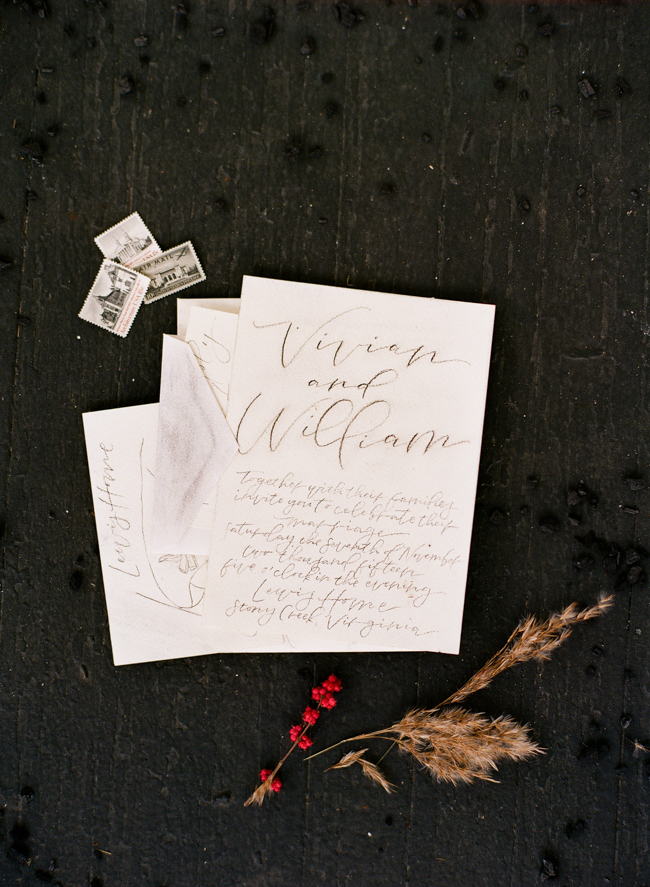 AIR MAIL
Lewis Home
Vivian
and
William
Together with their families
invite you to celebrate their
marriage
Saturday the seventh of November
two thousand fifteen
five o'clock in the evening
Lewis Home
Stony Creek, Virginia